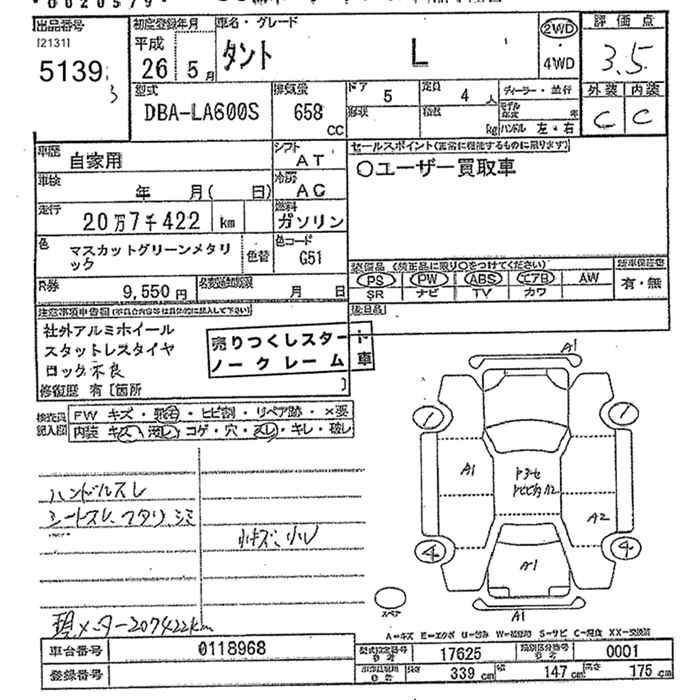 0020579
出品番号
[2131]
5139
3
初度登録年月
平成
26年5月
車名・グレード
タント L
2WD
・
4WD
評価点
3.5
外装 内装
C C
型式
DBA-LA600S
排気量
658
CC
ドア
5
定員
4人
形状
積載
kg
ディーラー・並行
モデル
年式 年
ハンドル 左・右
車歴
自家用
シフト
AT
車検
年 月( 日)
冷房
AC
走行
20万7千422 km
燃料
ガソリン
色
マスカットグリーンメタリ
ック
色替
色コード
G51
R券
9,550円
名変通知期限
月 日
セールスポイント(正常に機能するものに限ります)
○ユーザー買取車
装備品(純正品に限り○をつけてください)
PS PW ABS エアB AW
SR ナビ TV カワ
有・無
後日品
注意事項申告欄
社外アルミホイール
スタットレスタイヤ
ロック不良
修復歴 有[箇所 ]
売りつくしスタート
ノークレーム車
検査員
記入図
FW キズ・飛石・ヒビ割・リペア跡・×要
内装 キズ・汚レ・コゲ・穴・スレ・キレ・破レ
ハンドルスレ
シートスレ、ヘタリ、シミ
小キズ、小凹
現メーター207422km
A1
1
1
A1
A2
4
4
A1
A1
スペア
A-キズ E-エクボ U-凹み W-補修跡 S-サビ C-腐食 XX-交換済
車台番号
0118968
登録番号
型式指定番号
17625
類別区分番号
0001
長さ
339 cm
幅
147 cm
高さ
175 cm